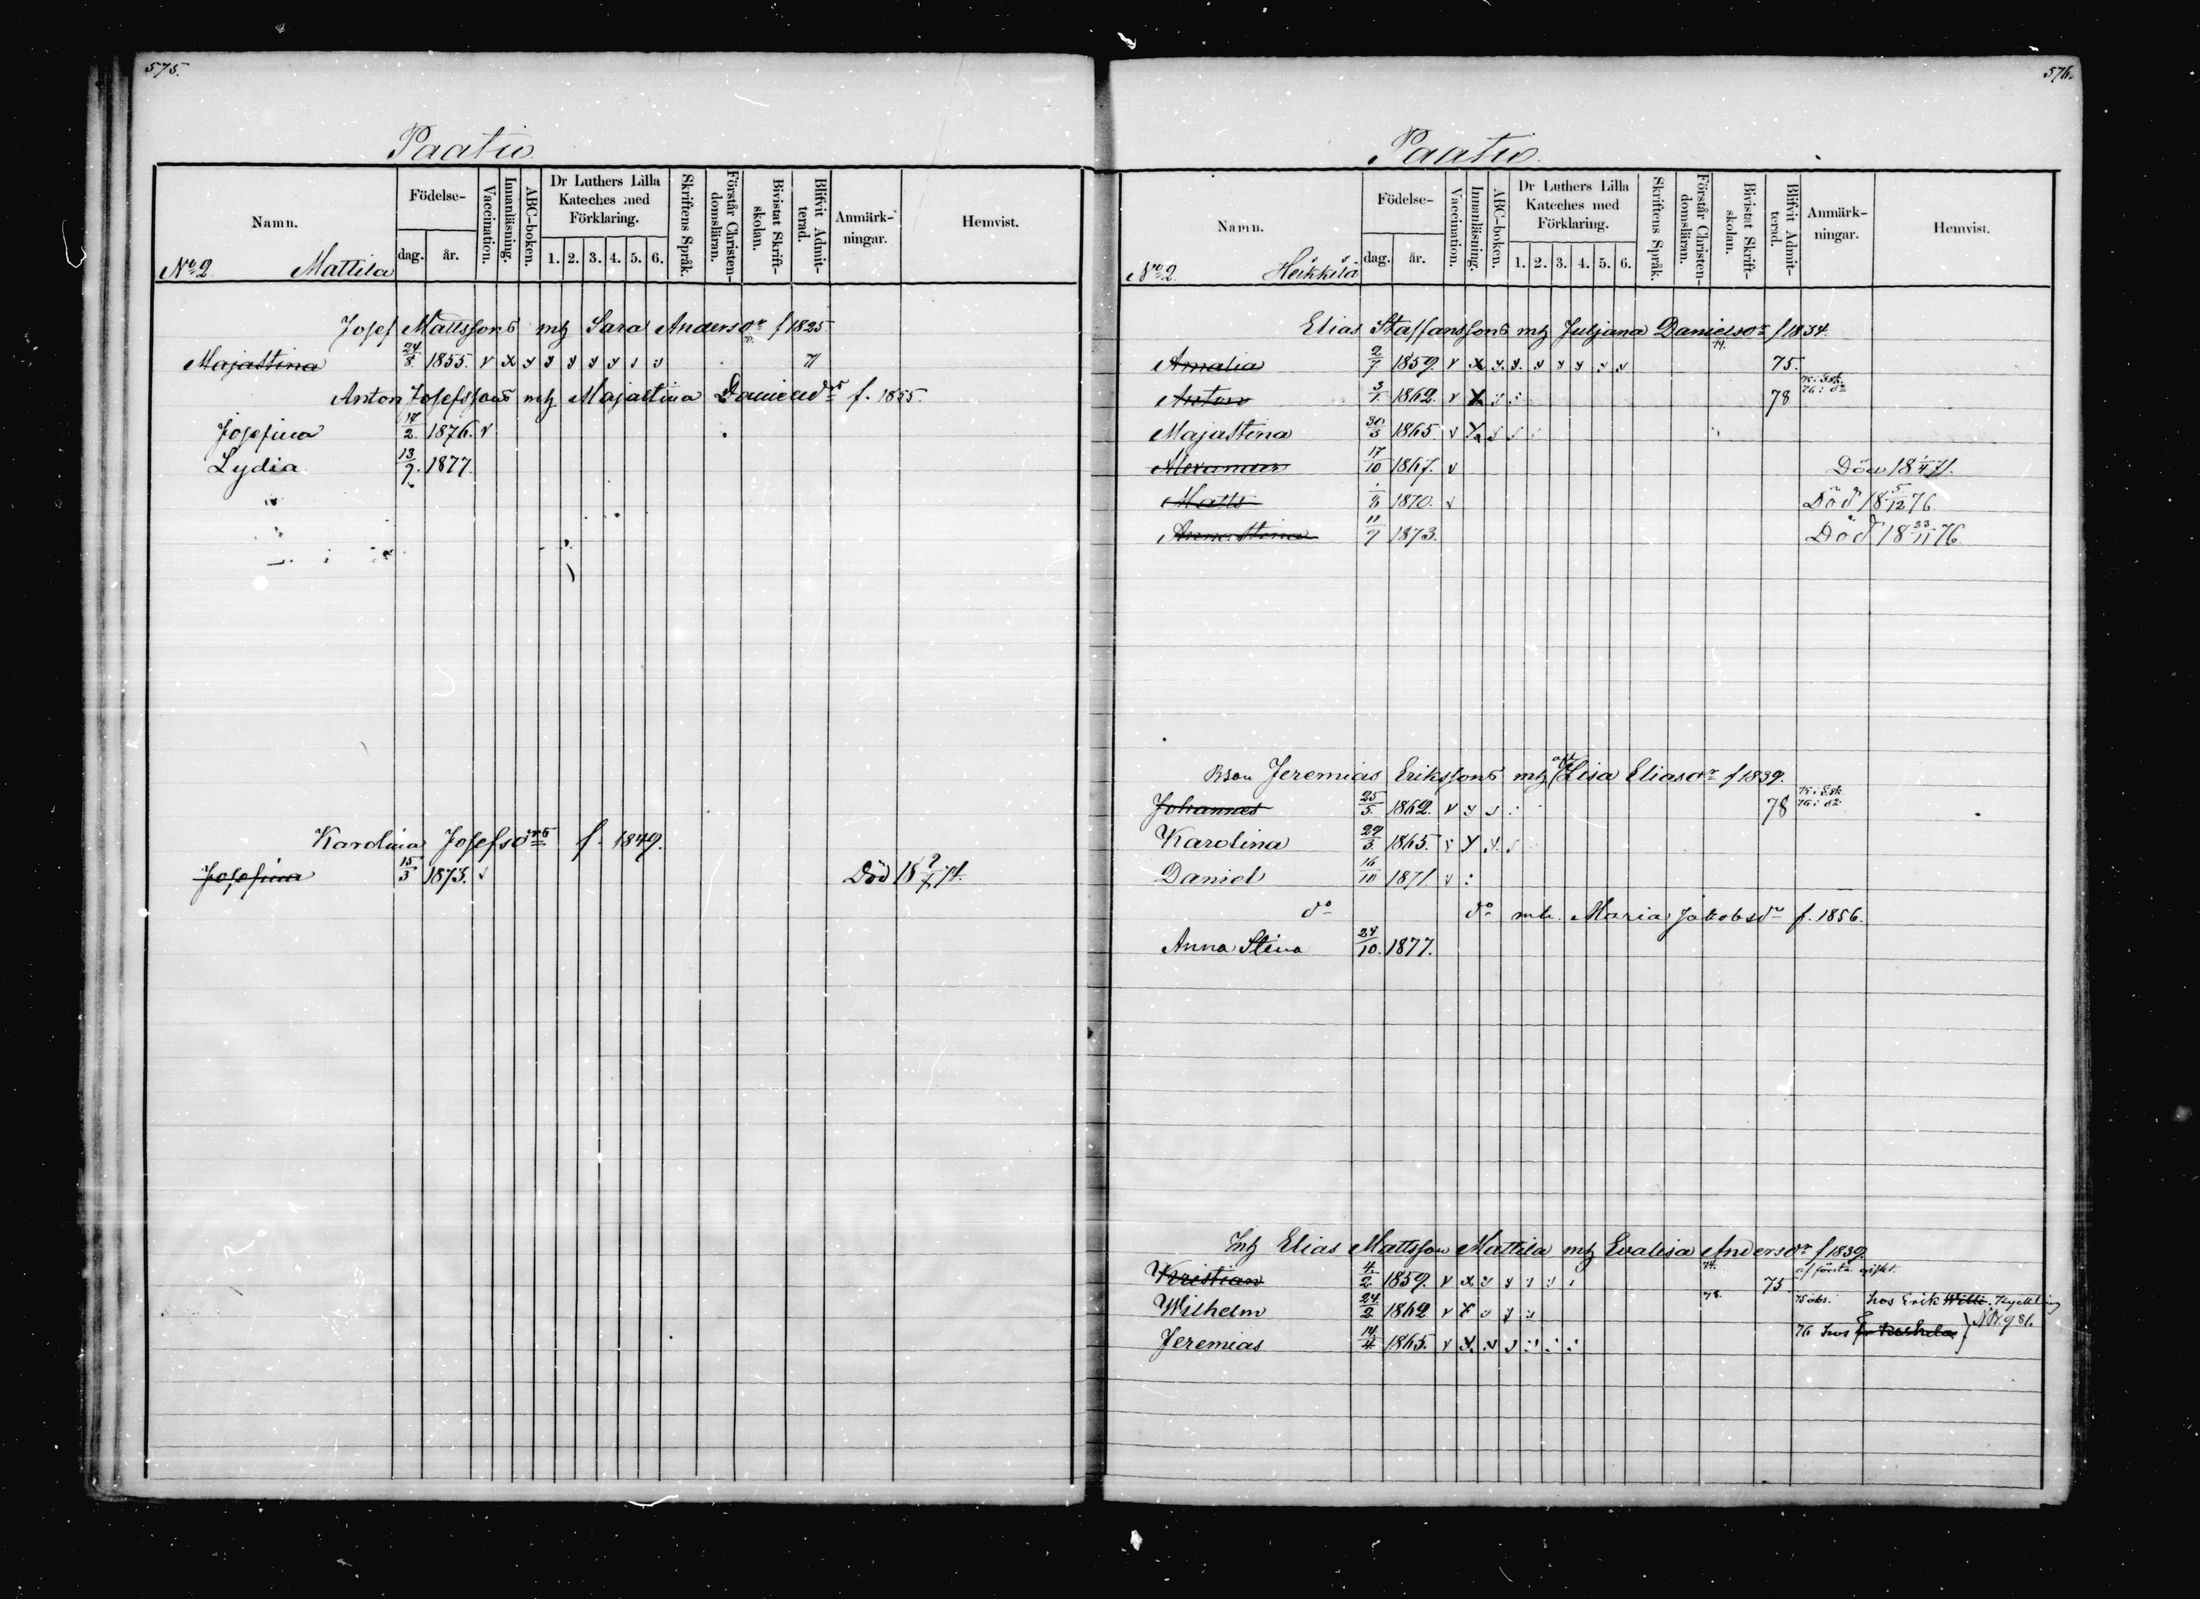 575.
Paatio
Namn.
Födelse-
dag.
år.
Vaccination.
Innanläsning.
ABC-boken.
Dr Luthers Lilla
Kateches med
Förklaring.
1. 2. 3. 4. 5. 6.
Skriftens Språk.
Förstår Christen-
domsläran.
Bivistat Skrift-
skolan.
Blifvit Admit-
terad.
Anmärk-
ningar.
Hemvist.
No 2. Mattila
Josef Mattssons mh Sara Andersdr f 1825
Majastina 24/8 1855. v x y y y y y 71
Anton Josefssons mh Majastina Danielsdr f. 1855.
Josefina 17/2 1876. v
Lydia 13/7. 1877.
Karolina Josefsdrs f. 1849.
Josefina 15/3 1873. v Död 18 74.
576.
Paatio.
Namn.
Födelse-
dag.
år.
Vaccination.
Innanläsning.
ABC-boken.
Dr Luthers Lilla
Kateches med
Förklaring.
1. 2. 3. 4. 5. 6.
Skriftens Språk.
Förstår Christen-
domsläran.
Bivistat Skrift-
skolan.
Blifvit Admit-
terad.
Anmärk-
ningar.
Hemvist.
No 2. Heikkilä
Elias Staffanssons mh Juljana Danielsdr f 1834.
Amalia 2/7 1859. v x 74. 75.
Anton 3/1 1862. v x 78
Majastina 30/3 1865 v
Alexander 17/10 1867. v Död 18 1/4 71.
Matts 1870. v Död 18 5/12 76.
Anna Stina 11/7 1873. Död 18 23/11 76.
Jeremias Erikssons mh Lisa Eliasdr f 1839.
Johannes 25/5. 1862. v y 78
Karolina 29/3. 1865. v y
Daniel 1871 v
do do mh. Maria Jakobsdr f. 1856.
Anna Stina 24/10. 1877.
Inh Elias Mattsson Mattila mh Evalisa Andersdr f 1839.
Kristian 4/2 1859. v x 74. 75. af första giftet.
Wilhelm 24/2 1862 v 78. hos Erik
Jeremias 14/4 1865. v 76 hos